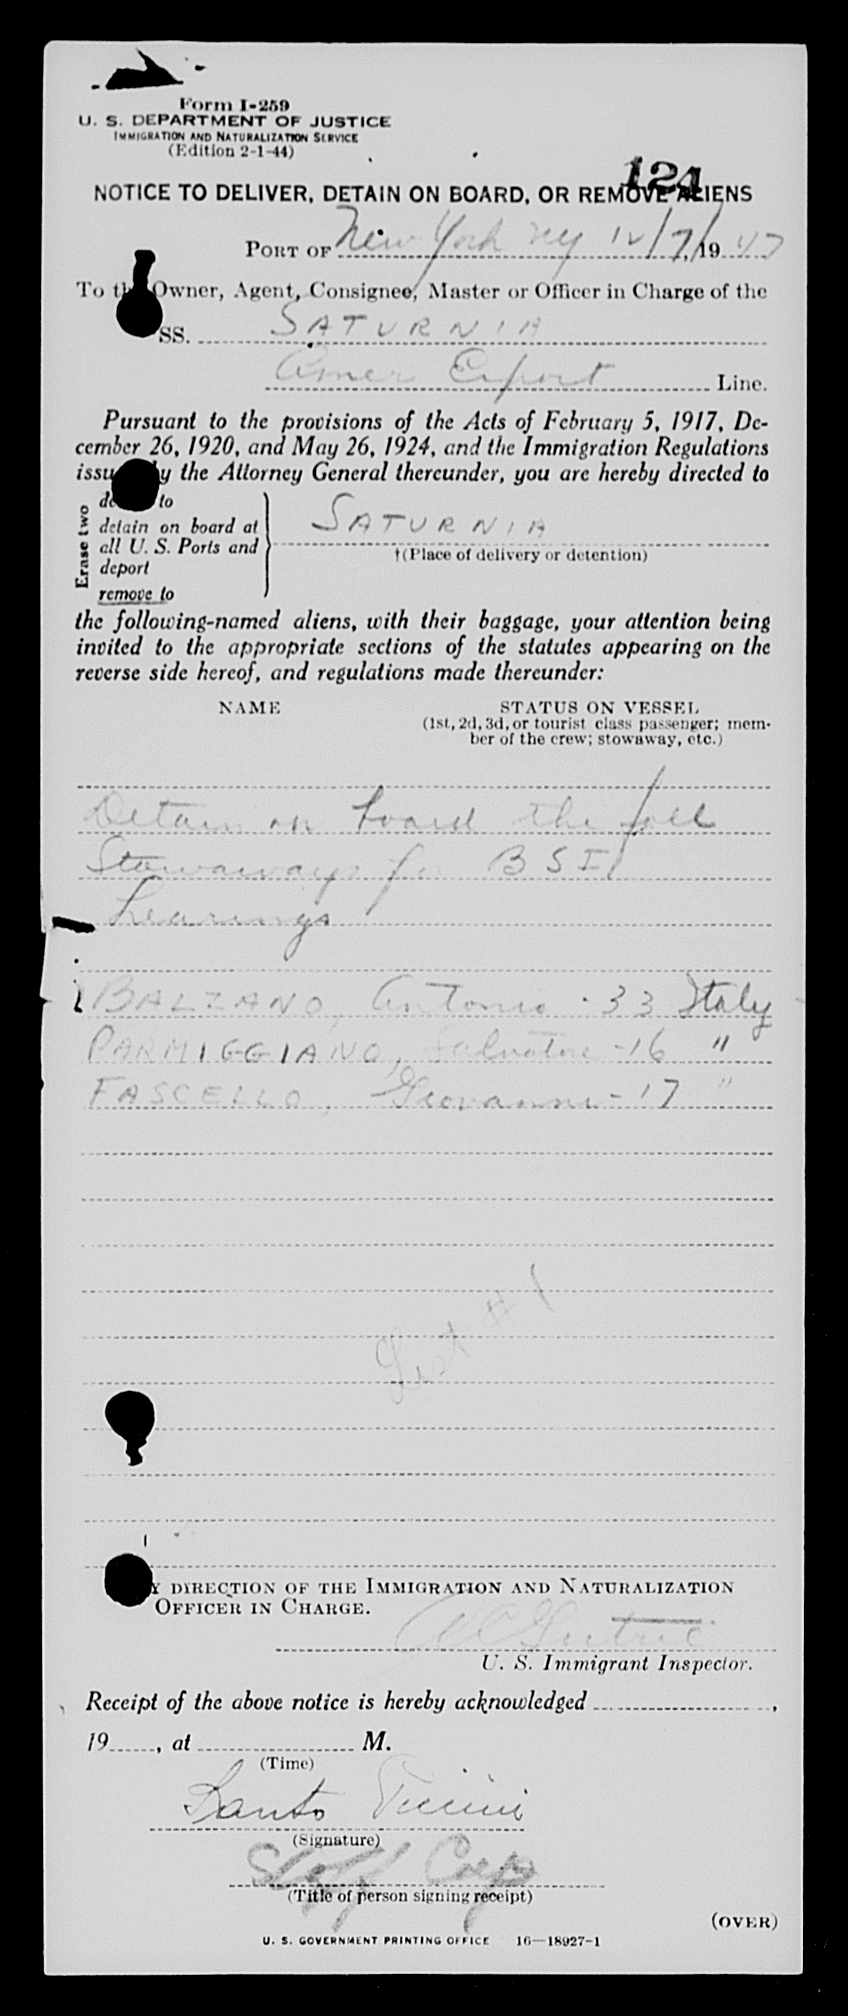 Form I-259
U. S. DEPARTMENT OF JUSTICE
IMMIGRATION AND NATURALIZATION SERVICE
(Edition 2-1-44)
124
NOTICE TO DELIVER, DETAIN ON BOARD, OR REMOVE ALIENS
PORT OF New York NY 12/7/, 1947
To the Owner, Agent, Consignee, Master or Officer in Charge of the
SS. SATURNIA
Amer Export Line.
Pursuant to the provisions of the Acts of February 5, 1917, De-
cember 26, 1920, and May 26, 1924, and the Immigration Regulations
issued by the Attorney General thereunder, you are hereby directed to
Erase two
to
detain on board at
all U. S. Ports and
deport
remove to
SATURNIA
†(Place of delivery or detention)
the following-named aliens, with their baggage, your attention being
invited to the appropriate sections of the statutes appearing on the
reverse side hereof, and regulations made thereunder:
NAME STATUS ON VESSEL
(1st, 2d, 3d, or tourist class passenger; mem-
ber of the crew; stowaway, etc.)
Detain on board the foll
Stowaways for BSI
hearings
BALZANO, Antonio - 33 Italy
PARMIGGIANO, Salvatore - 16 "
FASCELLO, Giovanni - 17 "
List # 1
BY DIRECTION OF THE IMMIGRATION AND NATURALIZATION
OFFICER IN CHARGE.
U. S. Immigrant Inspector.
Receipt of the above notice is hereby acknowledged ,
19 , at M.
(Time)
Santo
(Signature)
(Title of person signing receipt)
(OVER)
U. S. GOVERNMENT PRINTING OFFICE 16—18927-1